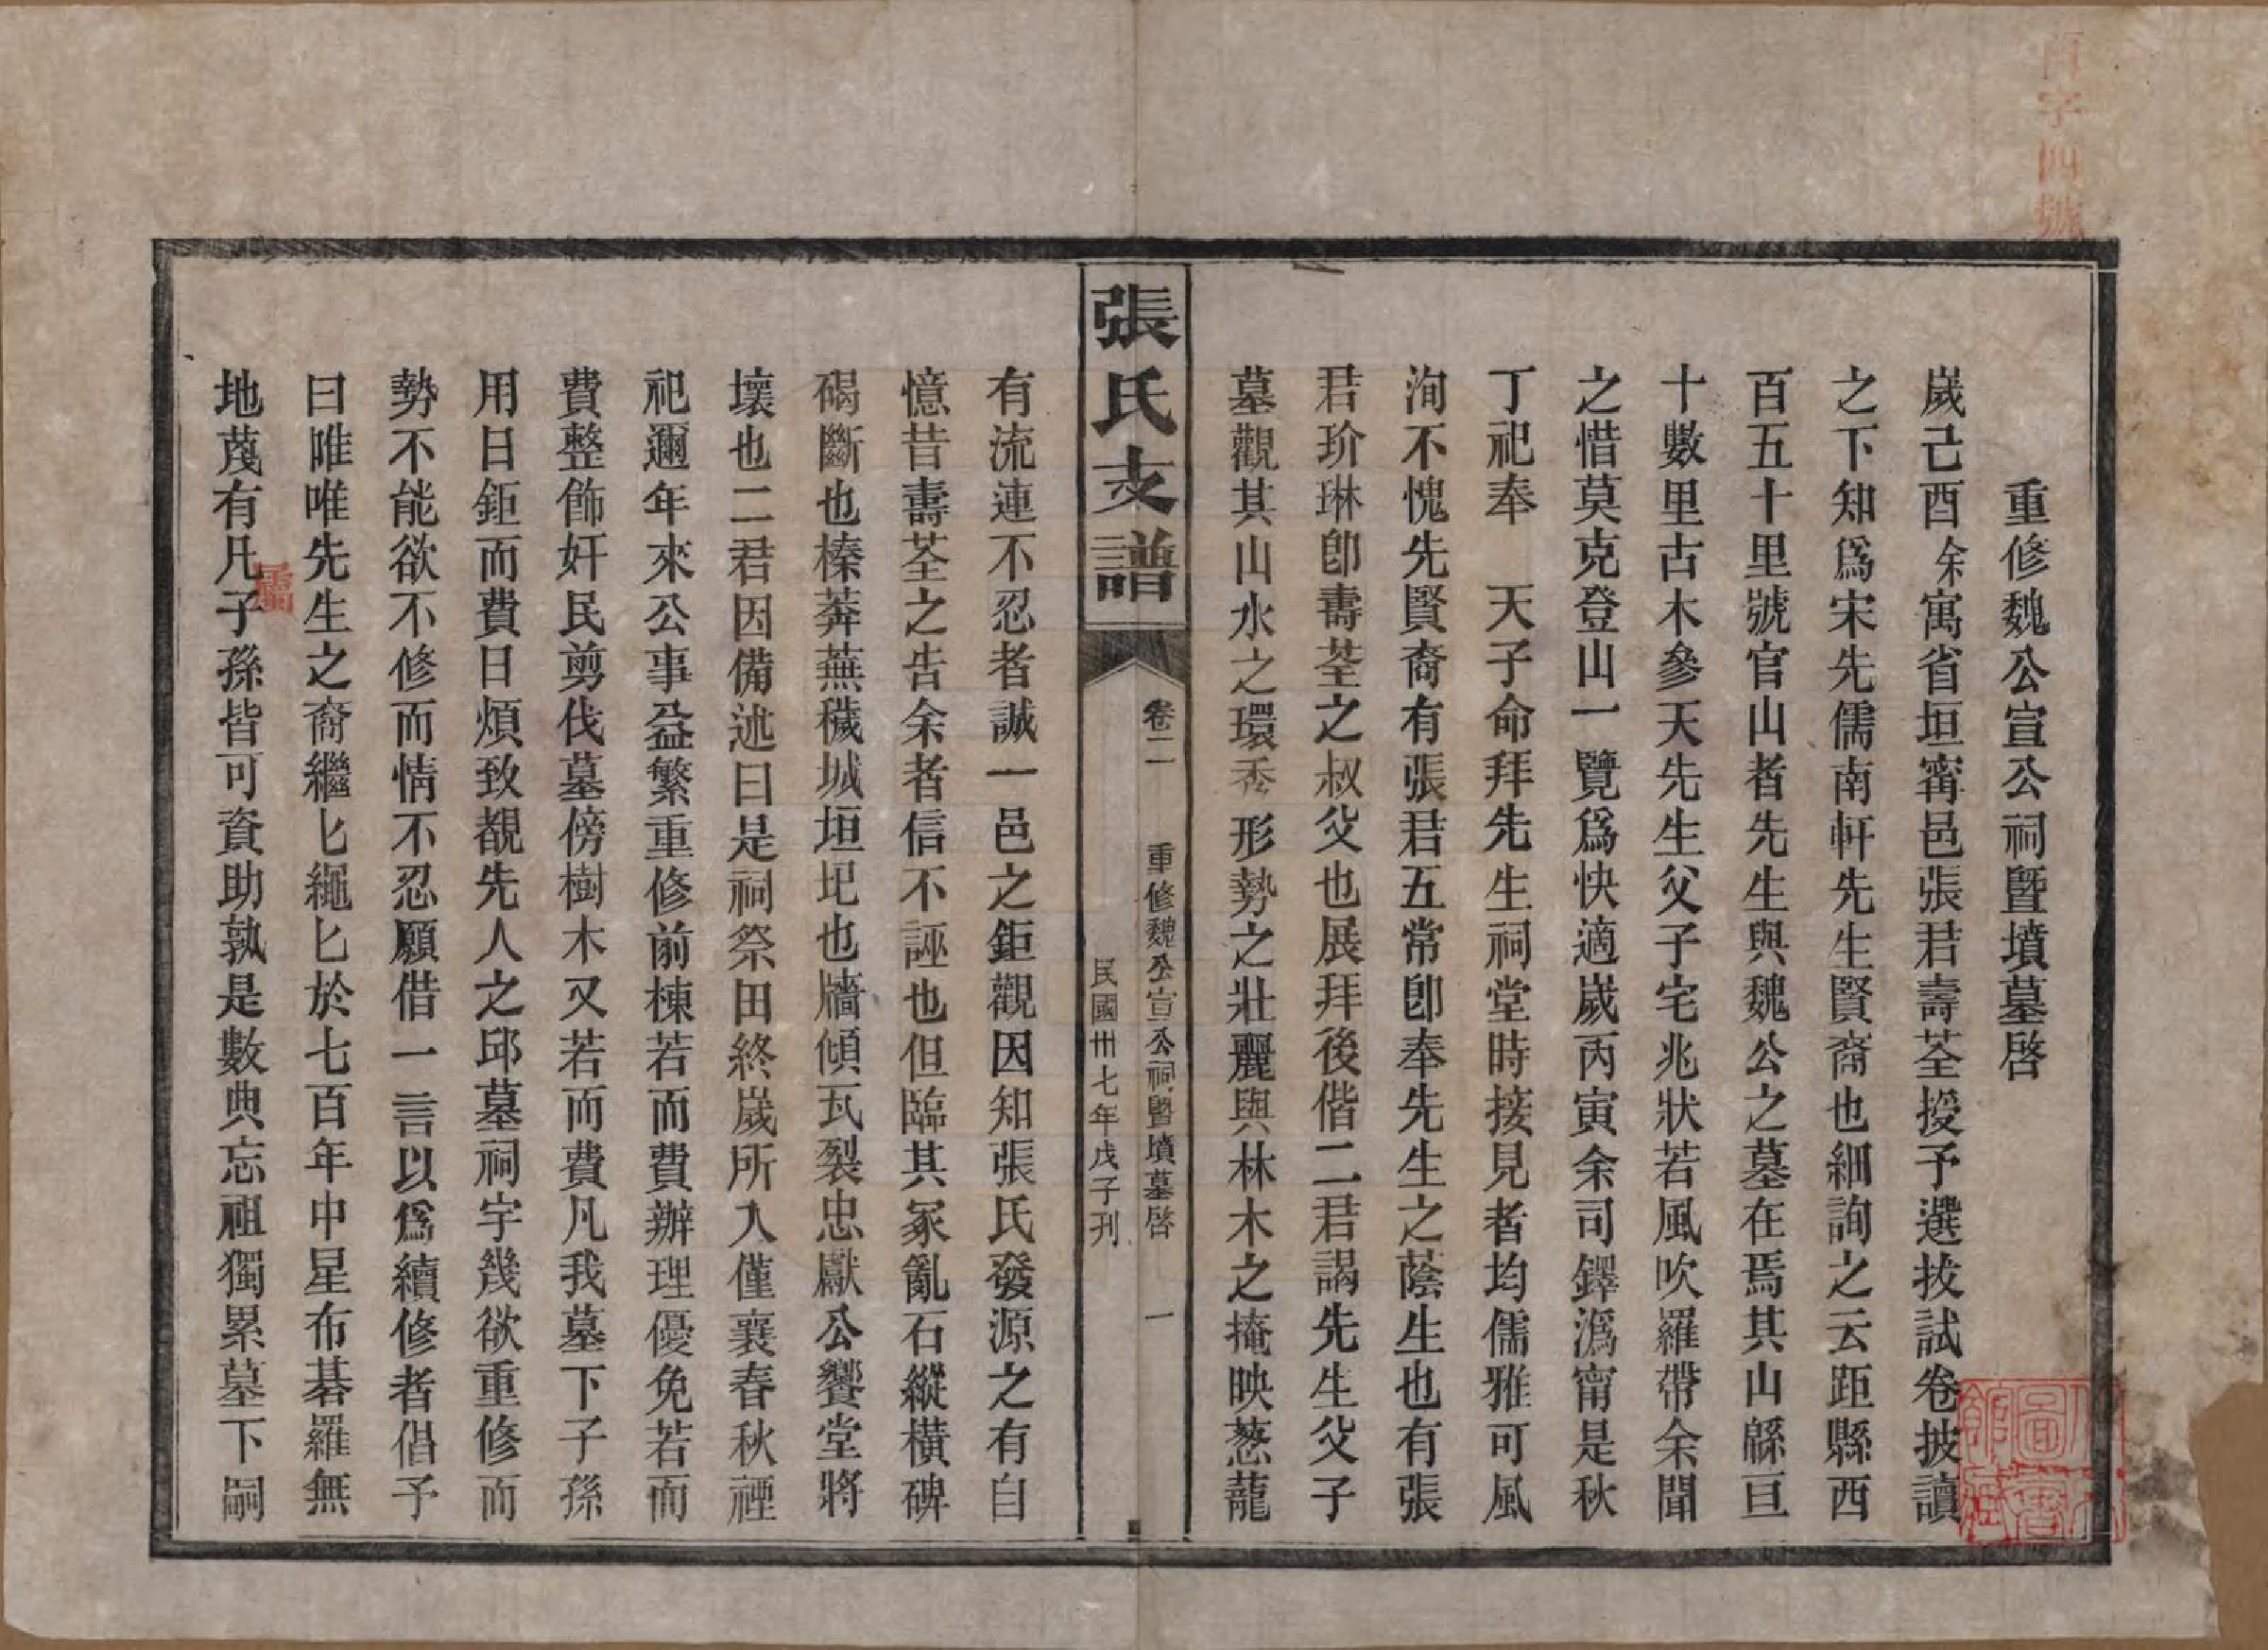 重修魏公宣公祠暨墳墓啓
歲己酉余寓省垣甯邑張君壽荃授予選拔試卷披讀
之下知爲宋先儒南軒先生賢裔也細詢之云距縣西
百五十里號官山者先生與魏公之墓在焉其山緜亘
十數里古木參天先生父子宅兆狀若風吹羅帶余聞
之惜莫克登山一覽爲快適歲丙寅余司鐸潙甯是秋
丁祀奉　天子命拜先生祠堂時接見者均儒雅可風
洵不愧先賢裔有張君五常卽奉先生之蔭生也有張
君玠琳卽壽荃之叔父也展拜後偕二君謁先生父子
墓觀其山水之環秀形勢之壯麗與林木之掩映葱蘢
張氏支譜
卷二　重修魏公宣公祠暨墳墓啓　一
民國卅七年戊子刋
有流連不忍者誠一邑之鉅觀因知張氏發源之有自
憶昔壽荃之告余者信不誣也但臨其冢亂石縱橫碑
碣斷也榛莽蕪穢城垣圯也牆傾瓦裂忠獻公饗堂將
壞也二君因備述曰是祠祭田終歲所入僅襄春秋禋
祀邇年來公事益繁重修前棟若而費辦理優免若而
費整飾奸民剪伐墓傍樹木又若而費凡我墓下子孫
用日鉅而費日煩致覩先人之邱墓祠宇幾欲重修而
勢不能欲不修而情不忍願借一言以爲續修者倡予
曰唯唯先生之裔繼匕繩匕於七百年中星布碁羅無
地蔑有凡子孫皆可資助孰是數典忘祖獨累墓下嗣
字四號